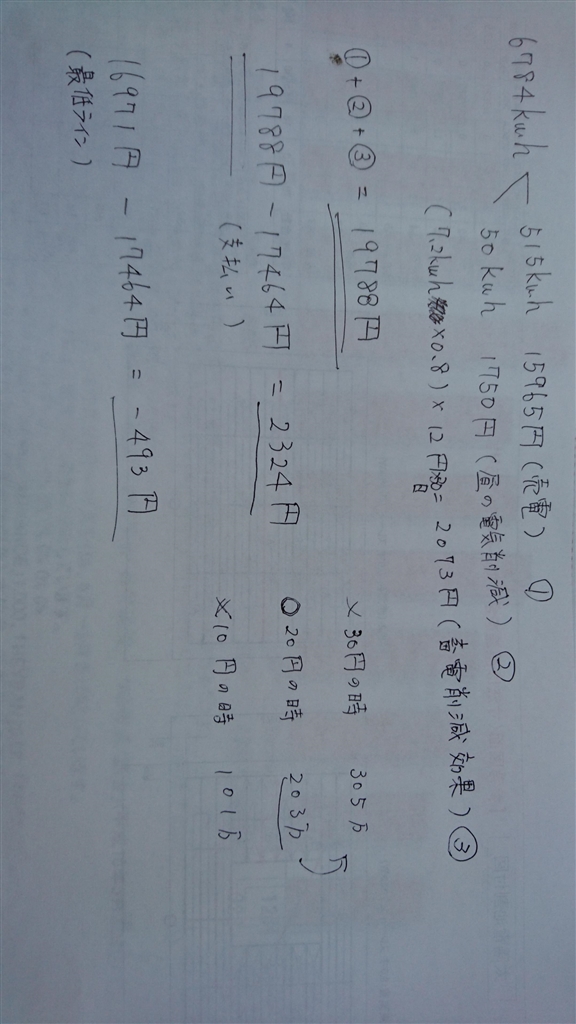 6784kwh < 515kwh 15965円 (売電) ①
50kwh 1750円 (昼の電気削減) ②
(7.2kwh ×0.8) × 12円 = 2073円 (蓄電削減効果) ③
①+②+③ = 19788円
19788円 - 17464円 = 2324円
(支払い)
16971円 - 17464円 = -493円
(最低ライン)
× 30円の時 305万
○ 20円の時 203万
× 10円の時 101万